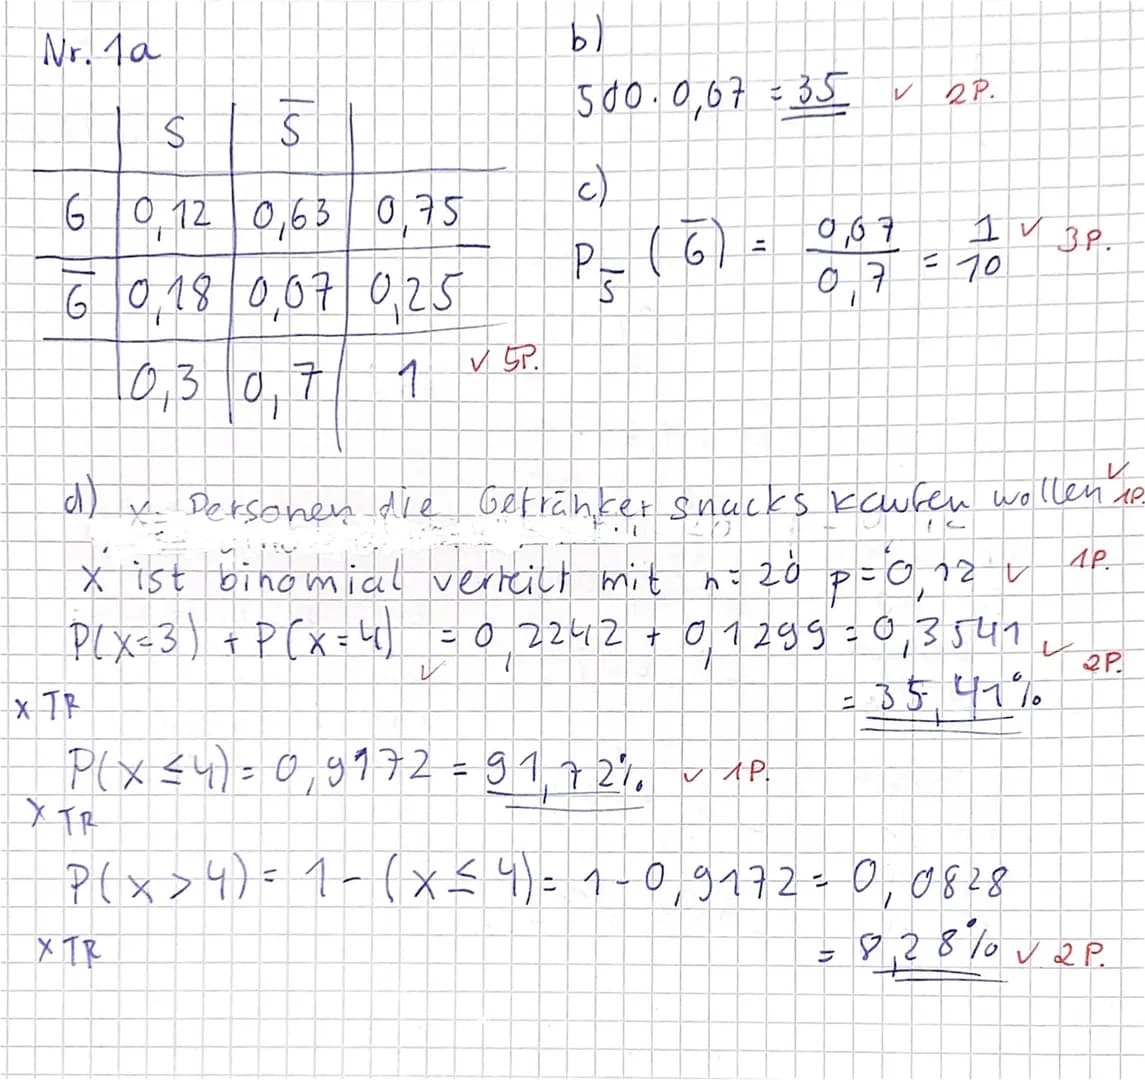 Nr. 1a
S | S̅
G | 0,12 | 0,63 | 0,75
G̅ | 0,18 | 0,07 | 0,25
0,3 | 0,7 | 1 ✓ 5P.
b)
500 · 0,07 = 35 ✓ 2P.
c)
P_S̅ (G̅) = 0,07/0,7 = 1/10 ✓ 3P.
d) x: Personen die Getränke+ snacks kaufen wollen ✓ 1P.
X ist binomial verteilt mit n = 20 p = 0,12 ✓ 1P.
P(x=3) + P(x=4) = 0,2242 + 0,1299 = 0,3541 ✓ ✓ 2P.
x TR = 35,41%
P(x ≤ 4) = 0,9172 = 91,72% ✓ 1P.
x TR
P(x > 4) = 1 - (x ≤ 4) = 1 - 0,9172 = 0,0828
x TR = 8,28% ✓ 2P.